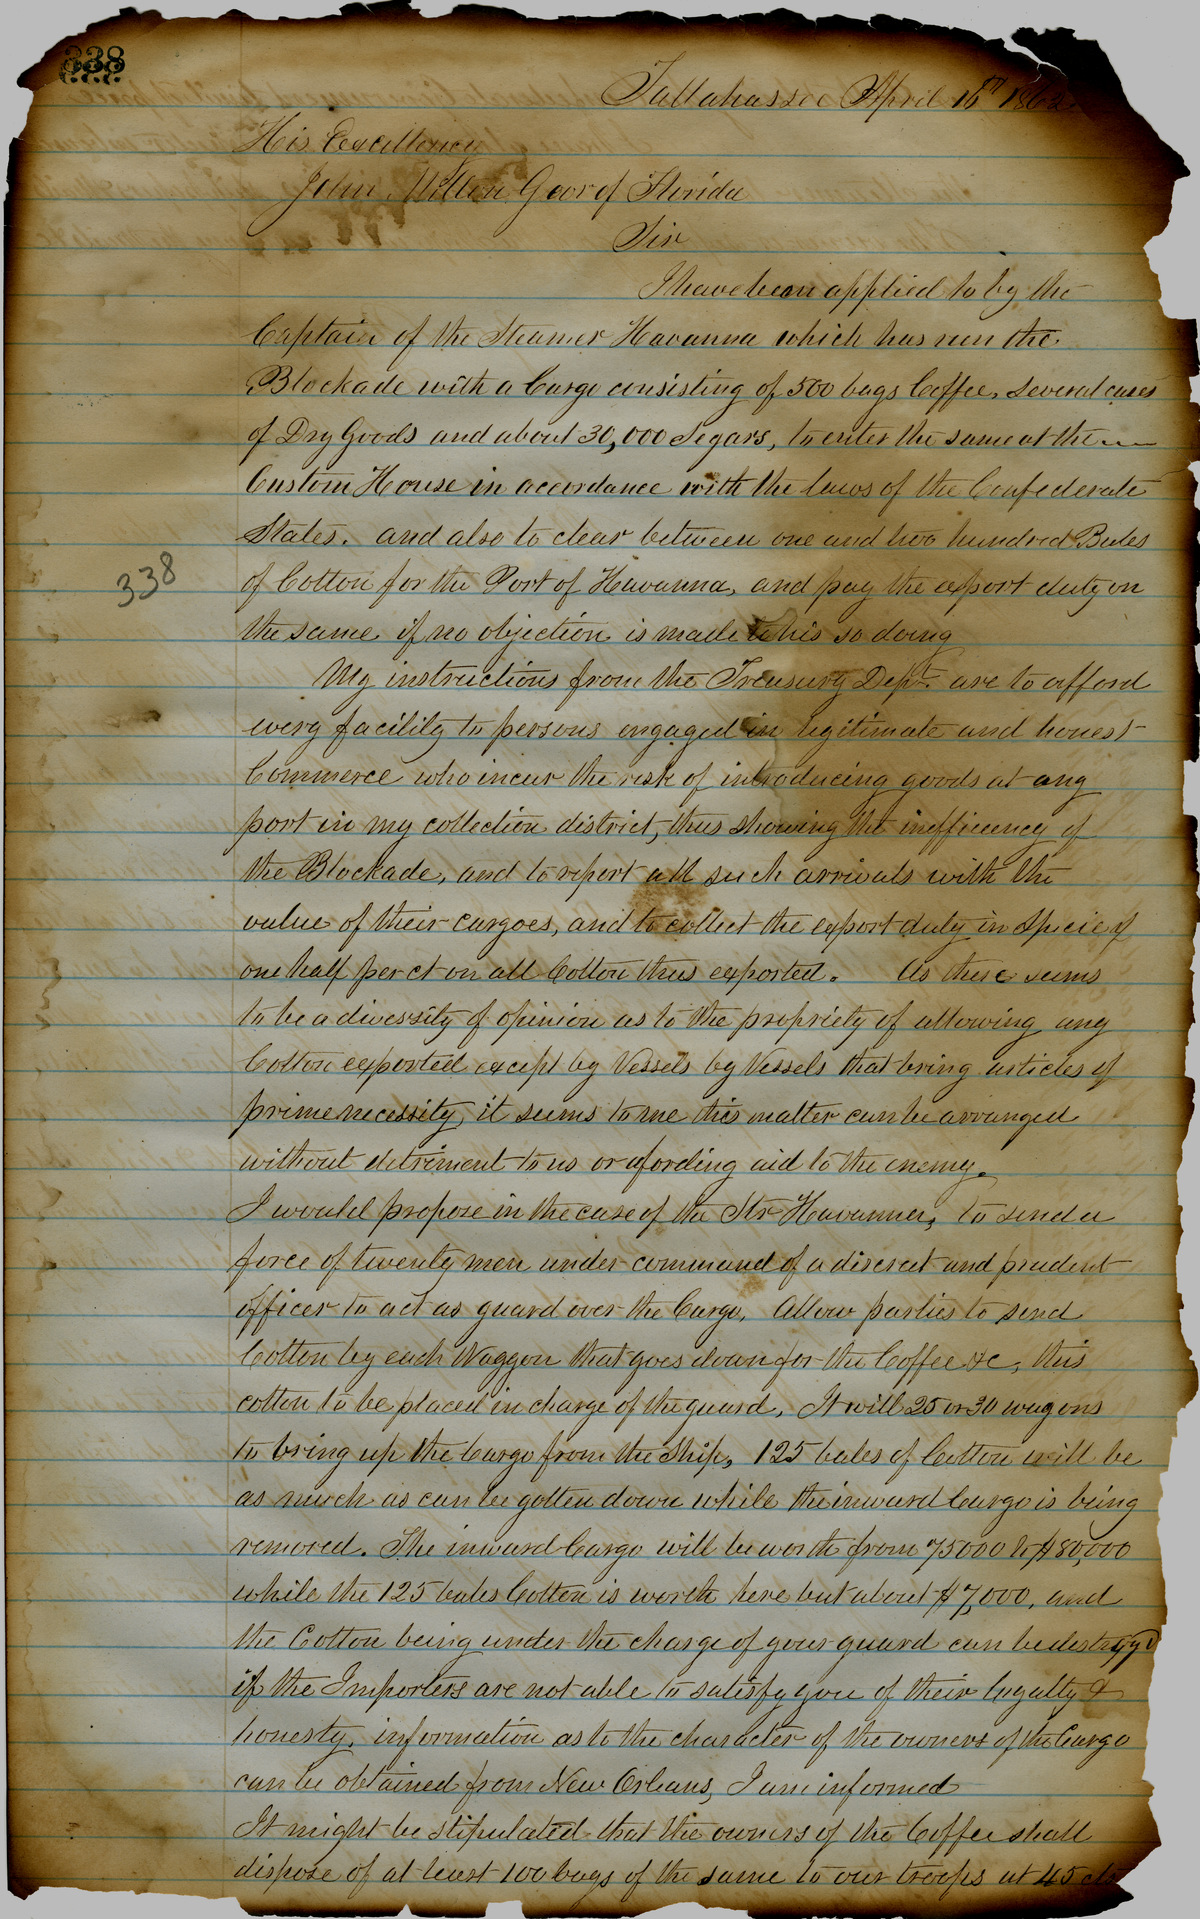 338
Tallahassee April 16th 1862
His Excellency
John Milton Govr of Florida
Sir
I have been applied to by the
Captain of the Steamer Havanna which has run the
Blockade with a Cargo consisting of 500 bags Coffee, several cases
of Dry Goods and about 30,000 Segars, to enter the same at the
Custom House in accordance with the laws of the Confederate
States. and also to clear between one and two hundred Bales
338
of Cotton for the Port of Havanna, and pay the export duty on
the same if no objection is made to his so doing
My instructions from the Treasury Dept. are to afford
every facility to persons engaged in legitimate and honest
Commerce who incur the risk of introducing goods at any
port in my collection district, thus showing the inefficiency of
the Blockade, and to report all such arrivals with the
value of their cargoes, and to collect the export duty in Specie of
one half per ct on all Cotton thus exported. As there seems
to be a diversity of opinion as to the propriety of allowing any
Cotton exported except by Vessels by Vessels that bring articles of
prime necessity, it seems to me this matter can be arranged
without detriment to us or afording aid to the enemy.
I would propose in the case of the Str Havanna, to send a
force of twenty men under command of a discreet and prudent
officer to act as guard over the Cargo, Allow parties to send
Cotton by each Waggon that goes down for the Coffee &c, this
cotton to be placed in charge of the guard, It will 25 or 30 wagons
to bring up the Cargo from the Ship, 125 bales of Cotton will be
as much as can be gotten down while the inward Cargo is being
removed. The inward Cargo will be worth from 75000 to $80,000
while the 125 bales Cotton is worth here but about $7,000, and
the Cotton being under the charge of your guard can be destroyed
if the Importers are not able to satisfy you of their loyalty &
honesty, information as to the character of the owners of the Cargo
can be obtained from New Orleans, I am informed
It might be stipulated that the owners of the Coffee shall
dispose of at least 100 bags of the same to our troops at 45 cts